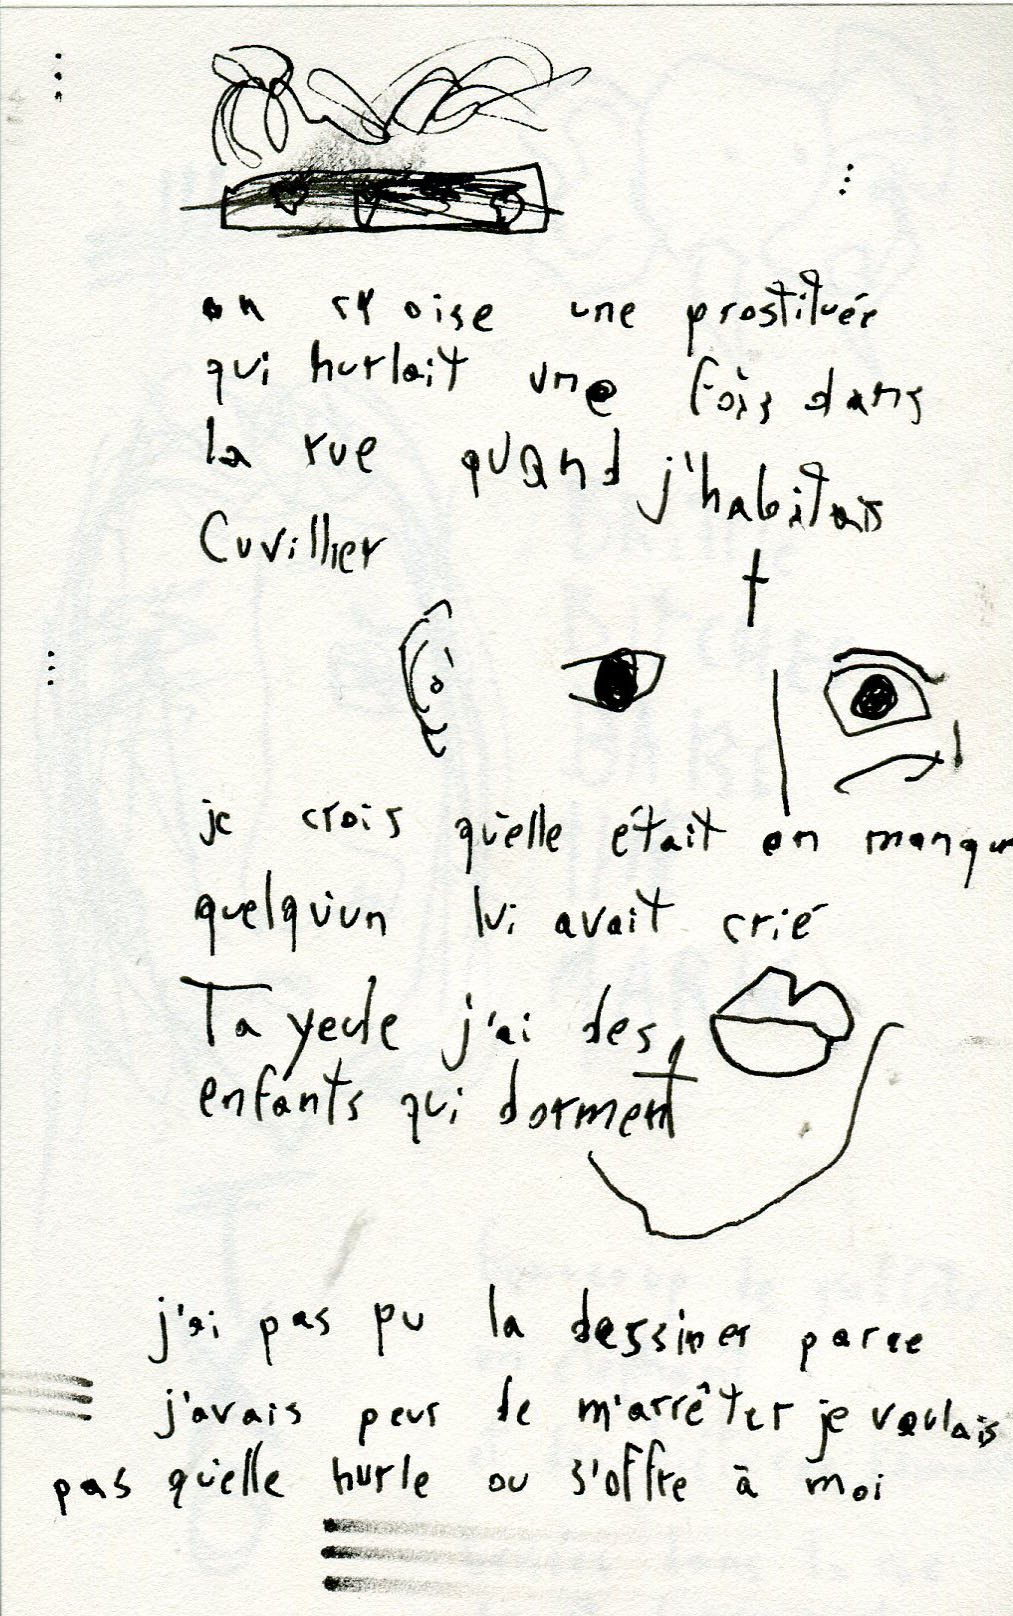 on croise une prostituée
qui hurlait une fois dans
la rue quand j'habitais
Cuvillier
je crois qu'elle était en manqu
quelqu'un lui avait crié
Ta yeule j'ai des
enfants qui dorment
j'ai pas pu la dessiner parce
j'avais peur de m'arrêter je voulais
pas qu'elle hurle ou s'offre à moi